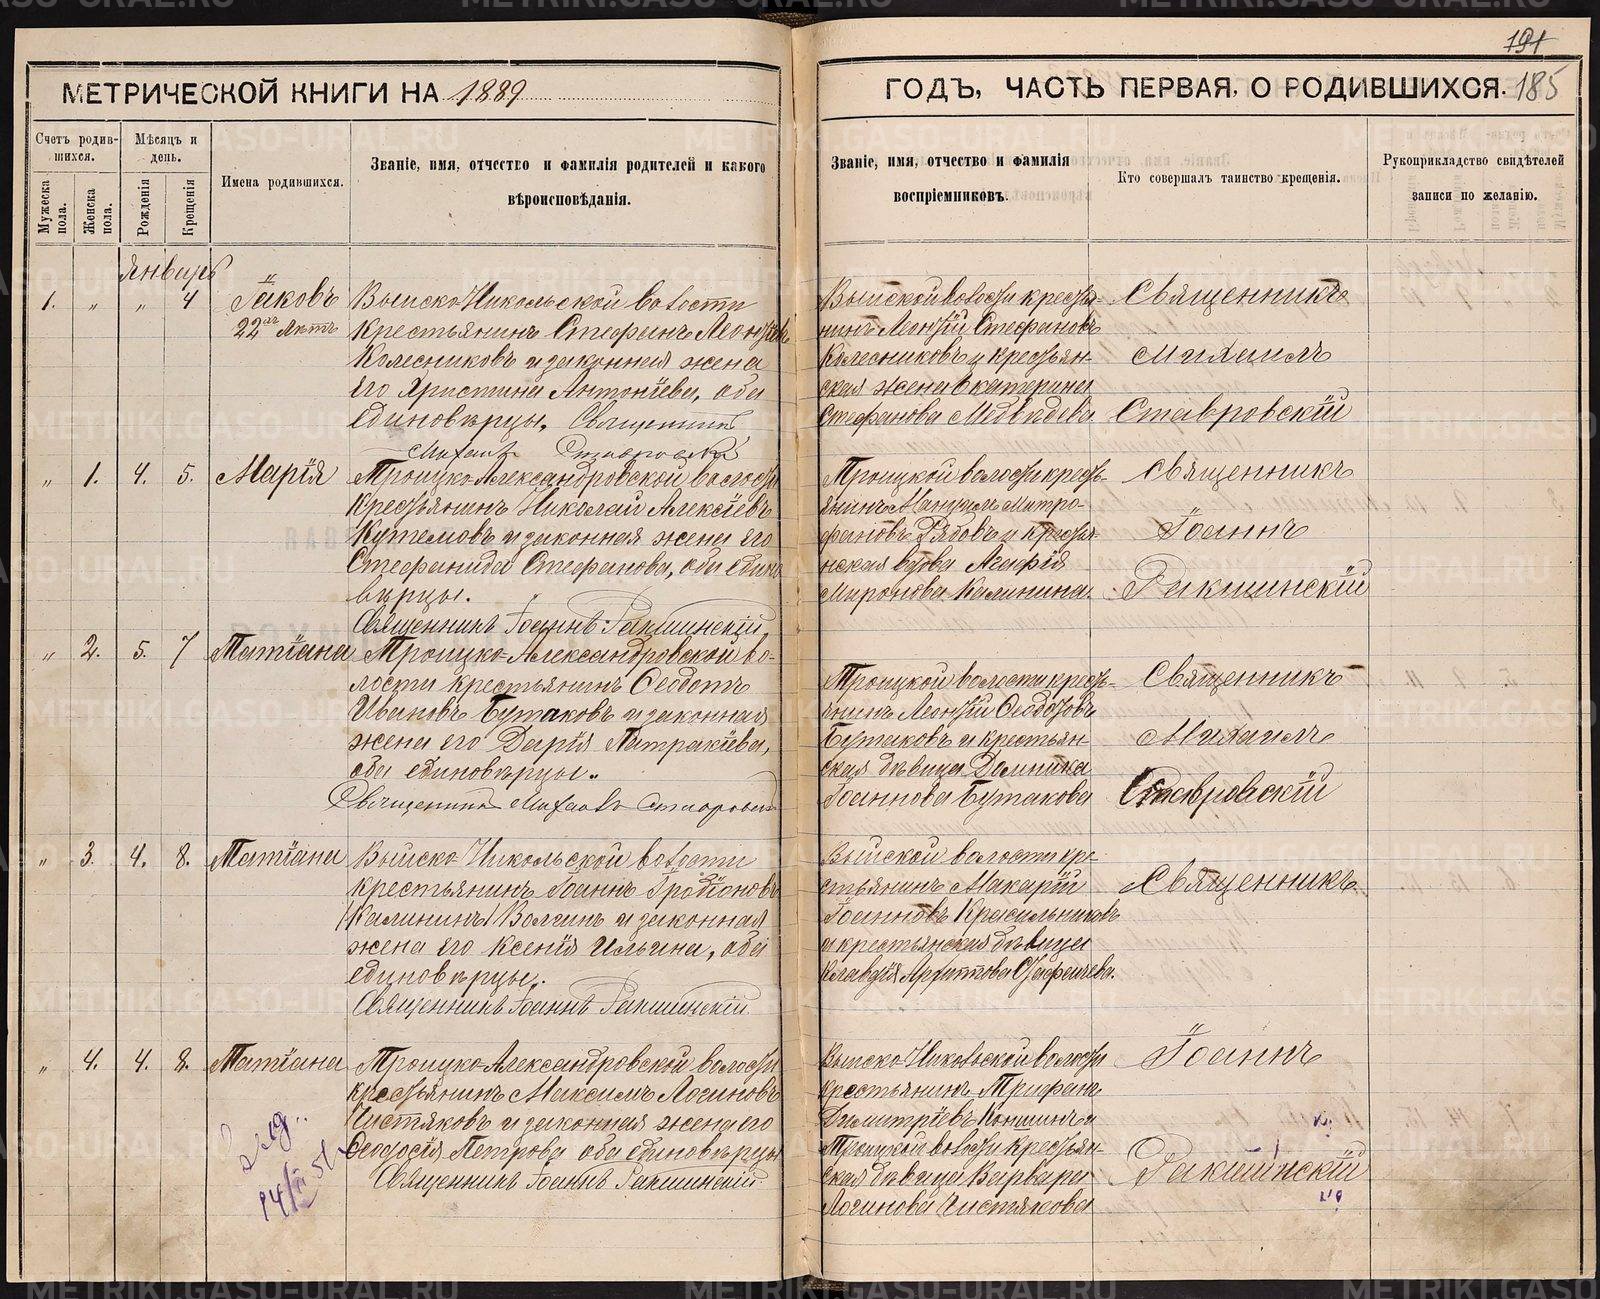 191
МЕТРИЧЕСКОЙ КНИГИ НА 1889
ГОДЪ, ЧАСТЬ ПЕРВАЯ, О РОДИВШИХСЯ. 185
Счетъ родив-
шихся.
Мужеска пола.
Женска пола.
Мѣсяцъ и день.
Рожденія
Крещенія
Имена родившихся.
Званіе, имя, отчество и фамилія родителей и какого
вѣроисповѣданія.
Званіе, имя, отчество и фамилія
воспріемниковъ.
Кто совершалъ таинство крещенія.
Рукоприкладство свидѣтелей
записи по желанію.
Январь
1. " " 4 Іаковъ
22 лѣтъ
Выйско-Никольской волости
крестьянинъ Стефанъ Леонтіевъ
Колесниковъ и законная жена
его Христина Антоніева, оба
единовѣрцы. Священникъ
Михаилъ Ставровскій
Выйской волости кресть-
нинъ Леонтій Стефановъ
Колесниковъ и крестьян-
ская жена Екатерина
Стефанова Медвѣдева.
Священникъ
Михаилъ
Ставровскій
" 1. 4. 5. Марія
Троицко-Александровской волости
крестьянинъ Николай Алексіевъ
Кутемовъ и законная жена его
Стефанида Стефанова, оба едино
вѣрцы.
Священникъ Іоаннъ Ракшинскій
Троицкой волости кресть-
янинъ Мануилъ Митро-
фановъ Рябовъ и кресть-
нская вдова Агафія
Миронова Калинина.
Священникъ
Іоаннъ
Ракшинскій
" 2. 5. 7 Татіана
Троицко-Александровской во-
лости крестьянинъ Ѳеодотъ
Ивановъ Бутаковъ и законная
жена его Дарія Патракіева,
оба единовѣрцы.
Священникъ Михаилъ Ставровскій
Троицкой волости кресть-
янинъ Леонтій Ѳеодотовъ
Бутаковъ и крестьян-
ская дѣвица Домника
Іоаннова Бутакова
Священникъ
Михаилъ
Ставровскій
" 3. 4. 8. Татіана
Выйско-Никольской волости
крестьянинъ Іоаннъ Родіоновъ
Калининъ Волгинъ и законная
жена его Ксенія Ильина, оба
единовѣрцы.
Священникъ Іоаннъ Ракшинскій
Выйской волости кре-
стьянинъ Макарій
Іоанновъ Красильниковъ
и крестьянская дѣвица
Клавдія
Священникъ
" 4. 4. 8. Татіана
Троицко-Александровской волости
крестьянинъ Максимъ Логиновъ
Чистяковъ и законная жена его
Ѳеодосія Петрова оба единовѣрцы
Священникъ Іоаннъ Ракшинскій
Выйско-Никольской волости
крестьянинъ Трифонъ
Димитріевъ Коншинъ и
Троицкой волости крестьян-
ская дѣвица Варвара
Логинова Чистякова
Іоаннъ
Ракшинскій